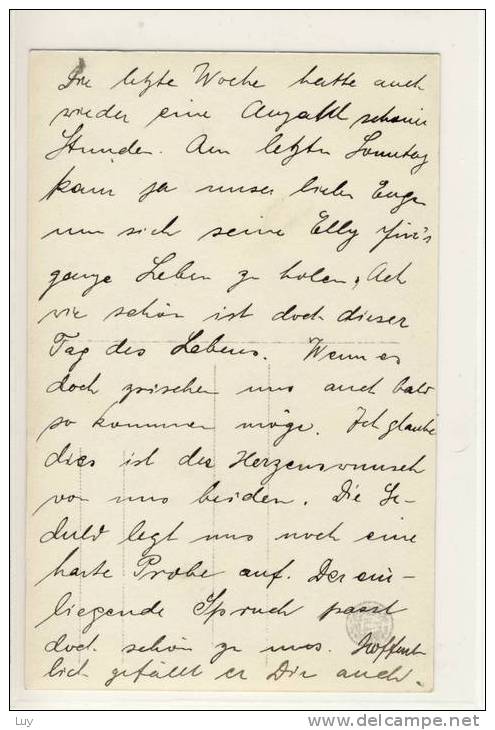 Die letzte Woche hatte auch
wieder eine Anzahl schöner
Stunden. Am letzten Sonntag
kam ja unser lieber Eugen
um sich seine Elly für's
ganze Leben zu holen, Ach
wie schön ist doch dieser
Tag des Lebens. Wenn es
doch zwischen uns auch bald
so kommen möge. Ich glaube
dies ist der Herzenswunsch
von uns beiden. Die Ge-
duld legt uns noch eine
harte Probe auf. Der ein-
liegende Spruch passt
doch schön zu uns. Hoffent
lich gefällt er Dir auch.
Luy
www.delcampe.net